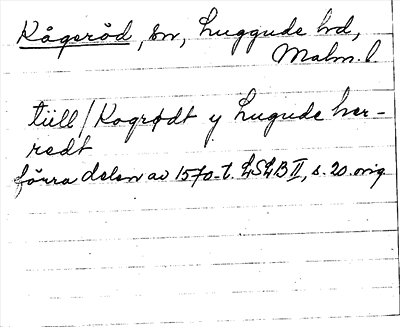 Kågeröd, sn, Luggude hd,
Malm. l
tiill / Kogrødt y Lugude her-
redt
förra delen av 1570-t. LSLB II, s. 20. orig